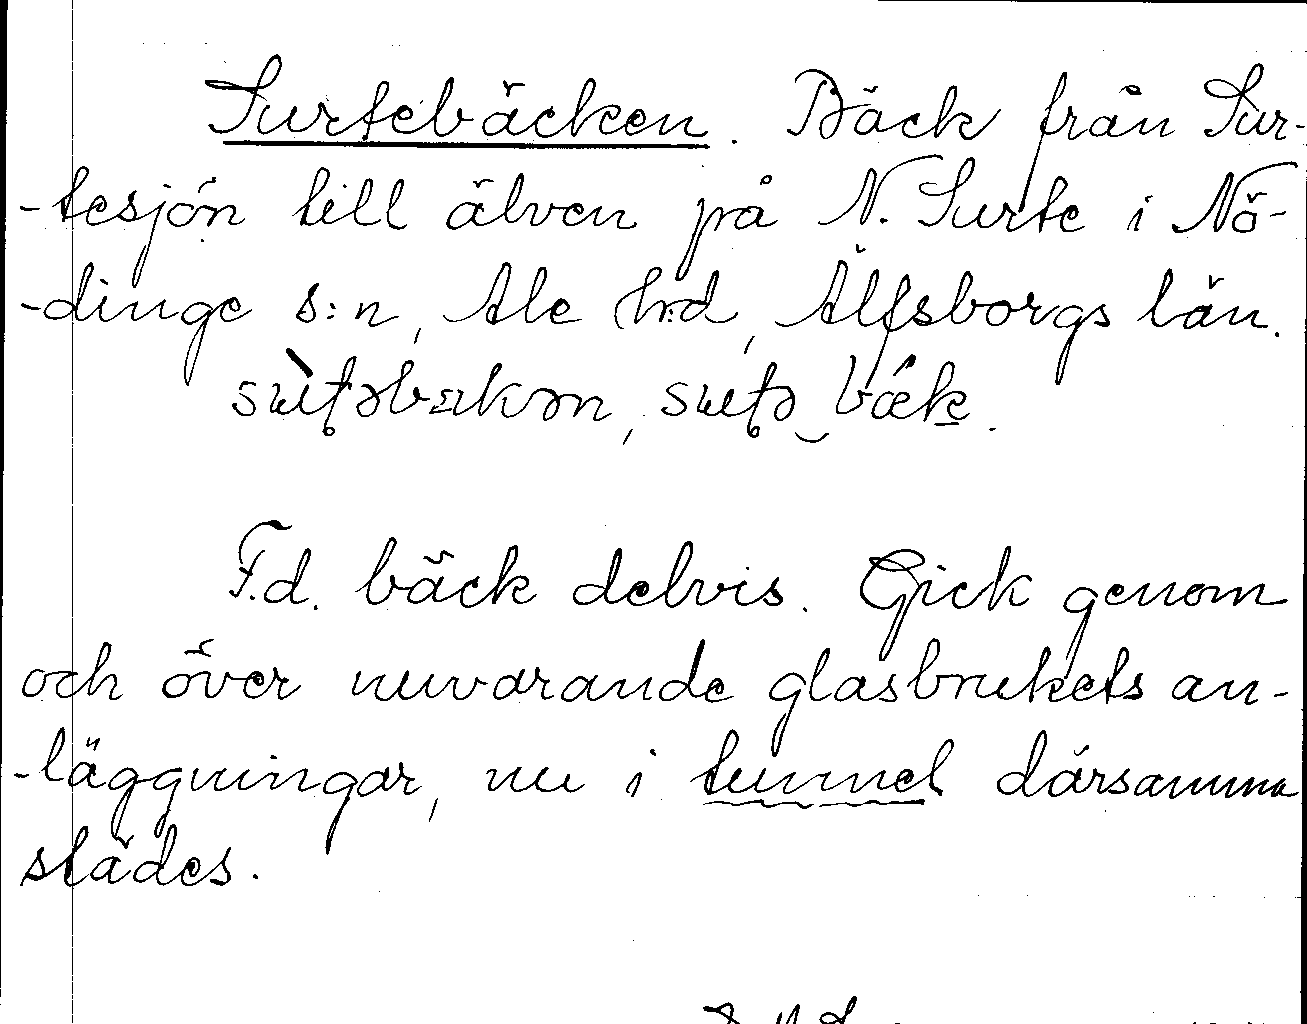 Surtebäcken. Bäck från Sur-
-tesjön till älven på N. Surte i Nö-
-dinge s:n, Ale h:d, Älfsborgs län.
F.d. bäck delvis. Gick genom
och över nuvarande glasbrukets an-
-läggningar, nu i tunnel därsamma
städes.